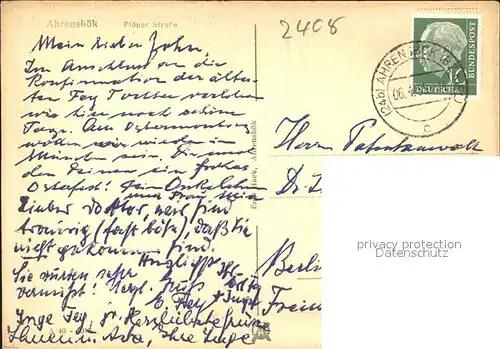 Ahrensbök Plöner Straße
2408
Mein lieber John,
Im Anschluss an die
Konfirmation der ältes-
ten Fey Tochter verleben
wir hier noch schöne
Tage. Am Ostermontag
wollen wir wieder in
München sein. Dir und
den Deinen ein frohes
Osterfest! Dein Onkel
und Frau
Lieber Doktor, wir sind
traurig (fast böse), daß Sie
nicht gekommen sind.
Sie wurden sehr
vermisst! Herzl.
Inge Fey. Herzlichste Grüße
Ihnen u. Ihre Inge
A 40
Ahrensbök
(24b) AHRENSBÖK
06.
c
10
DEUTSCHE
BUNDESPOST
Herrn Patentanwalt
Dr. I
Berlin
privacy protection
Datenschutz